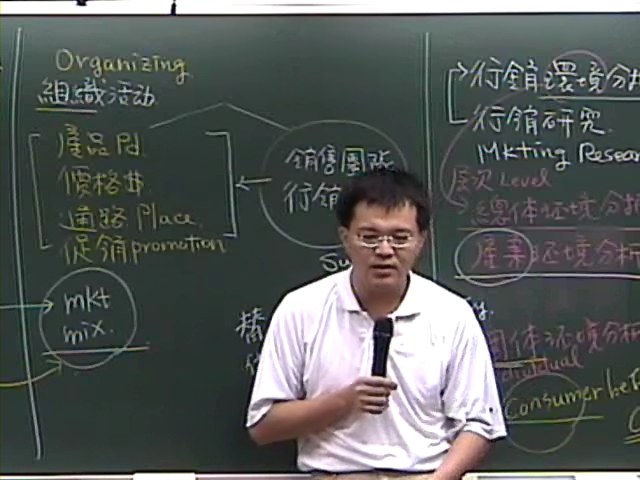 Organizing
組織活动
產品 Pd.
價格 $
通路 Place
促銷 promotion
mkt
mix.
銷售團隊
行銷
行銷環境分析
行銷研究
Mkting Resear
層次 Level
總体环境分析
產業环境分析
個体环境分析
Consumer be